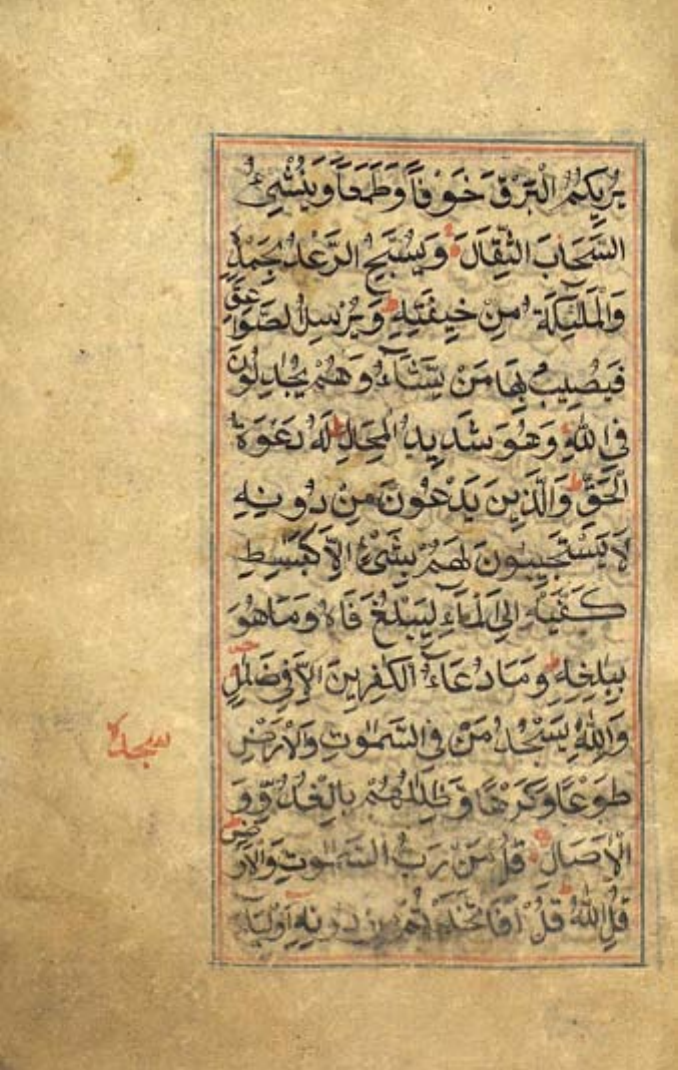 يُرِيكُمُ الْبَرْقَ خَوْفًا وَطَمَعًا وَيُنْشِئُ
السَّحَابَ الثِّقَالَ وَيُسَبِّحُ الرَّعْدُ بِحَمْدِهِ
وَالْمَلٰئِكَةُ مِنْ خِيفَتِهِ ط وَيُرْسِلُ الصَّوَاعِقَ
فَيُصِيبُ بِهَا مَنْ يَشَاءُ وَهُمْ يُجَادِلُونَ
فِي اللهِ وَهُوَ شَدِيدُ الْمِحَالِ ط لَهُ دَعْوَةُ
الْحَقِّ ط وَالَّذِينَ يَدْعُونَ مِنْ دُونِهِ
لَا يَسْتَجِيبُونَ لَهُمْ بِشَيْءٍ اِلَّا كَبَسِطِ
كَفَّيْهِ اِلَى الْمَاءِ لِيَبْلُغَ فَاهُ وَمَا هُوَ
بِبَالِغِهِ ط وَمَا دُعَاءُ الْكٰفِرِينَ اِلَّا فِي ضَلٰلٍ
وَلِلّٰهِ يَسْجُدُ مَنْ فِي السَّمٰوٰتِ وَالْاَرْضِ
طَوْعًا وَكَرْهًا وَظِلٰلُهُمْ بِالْغُدُوِّ وَ
الْاٰصَالِ قُلْ مَنْ رَبُّ السَّمٰوٰتِ وَالْاَرْضِ
قُلِ اللهُ ط قُلْ اَفَاتَّخَذْتُمْ مِنْ دُونِهِ اَوْلِيَاءَ
سجدة